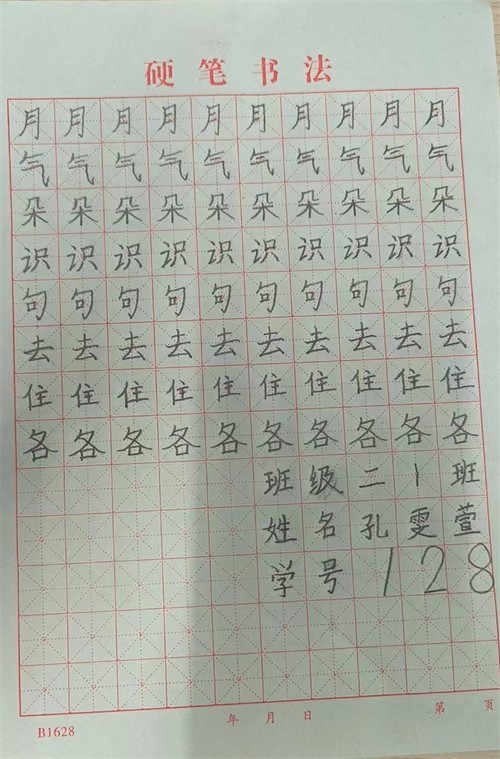 硬笔书法
月月月月月月月月月月
气气气气气气气气气气
朵朵朵朵朵朵朵朵朵朵
识识识识识识识识识识
句句句句句句句句句句
去去去去去去去去去去
住住住住住住住住住住
各各各各各各各各各各
班级二1班
姓名孔雯萱
学号128
年 月 日 第 页
B1628